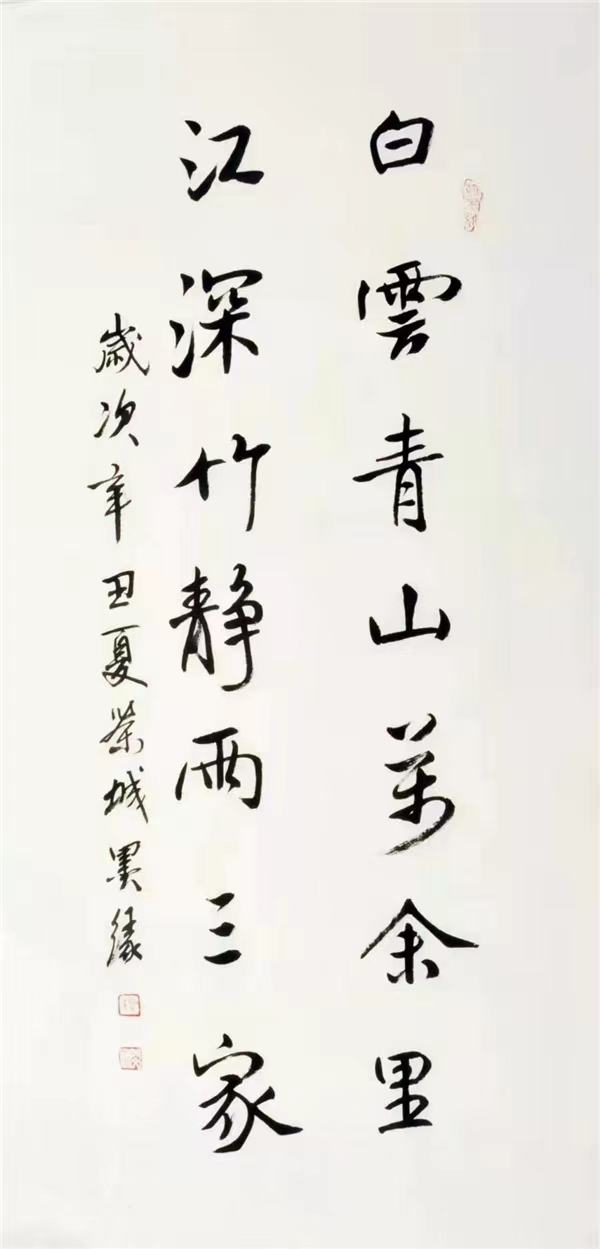 白雲青山萬余里
江深竹静兩三家
歲次辛丑夏荣城墨緣